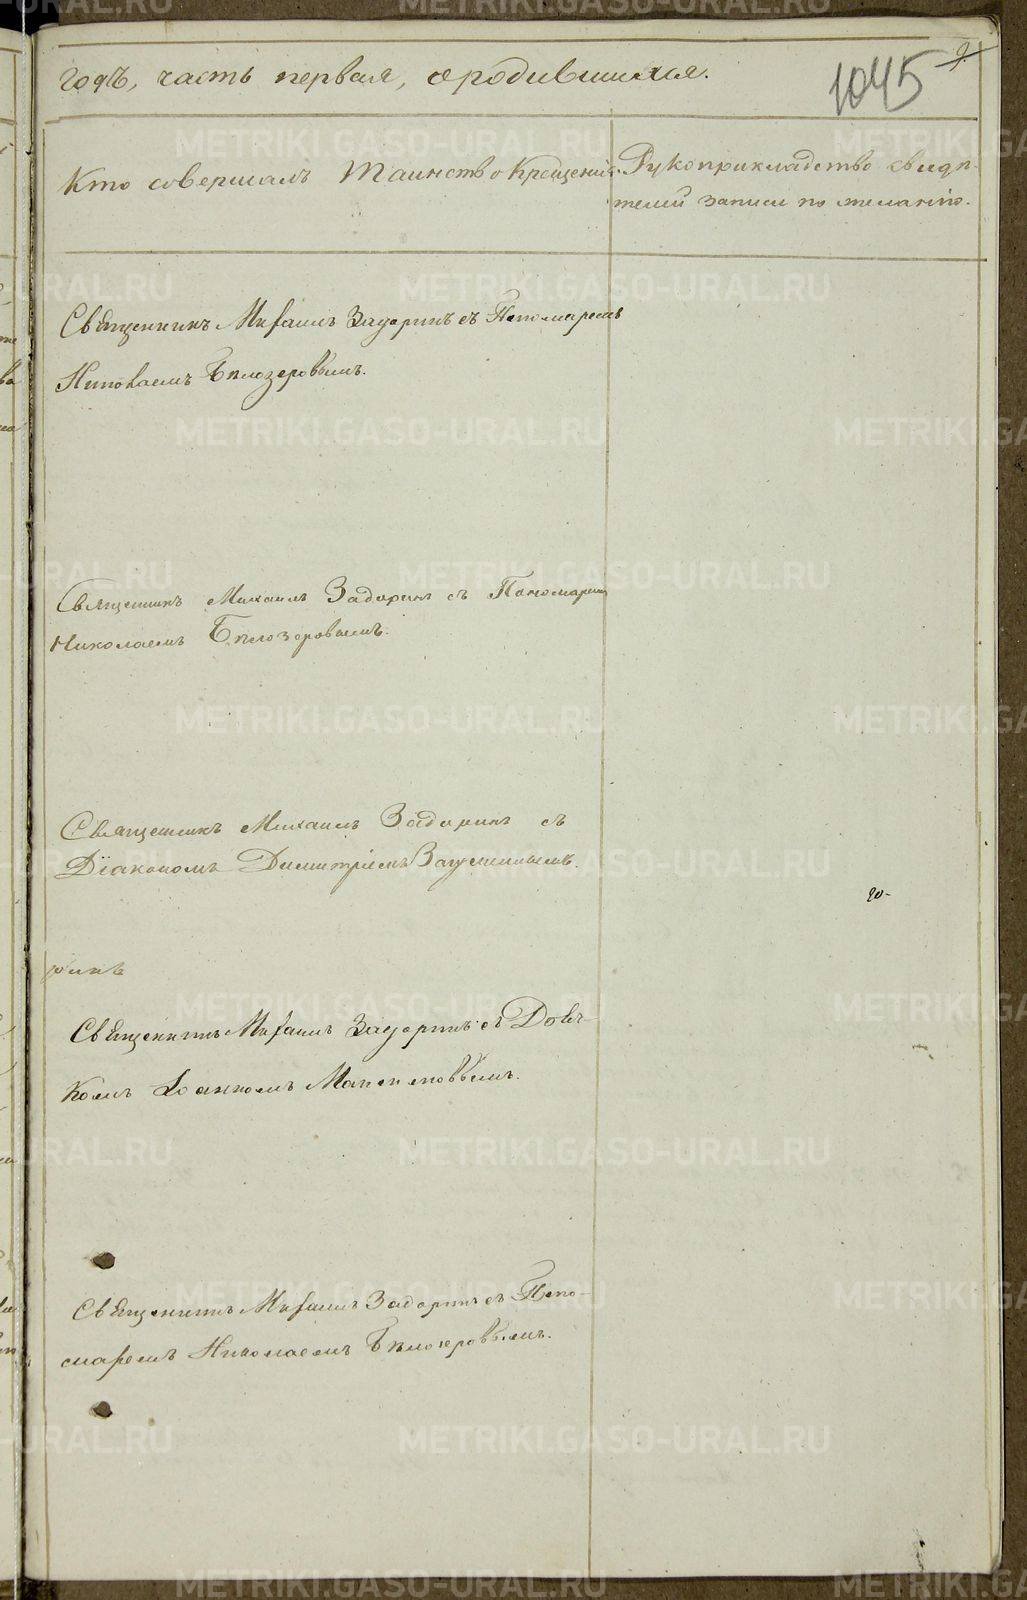 годъ, часть первая, о родившихся.
1045
9
Кто совершалъ Таинство Крещенія.
Рукоприкладство свидѣ-
телей записи по желанію.
Священникъ Михаилъ Задоринъ съ Пономаремъ
Николаемъ Бѣлозеровымъ.
Священникъ Михаилъ Задоринъ съ Пономаремъ
Николаемъ Бѣлозеровымъ.
Священникъ Михаилъ Задоринъ съ
Діакономъ Димитріемъ
Священникъ Михаилъ Задоринъ съ Дьяч-
комъ Іоанномъ
Священникъ Михаилъ Задоринъ съ Поно-
маремъ Николаемъ Бѣлозеровымъ.
METRIKI.GASO-URAL.RU